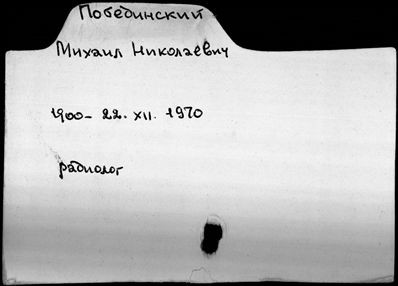 Побединский
Михаил Николаевич
1900 – 22. XII. 1970
радиолог